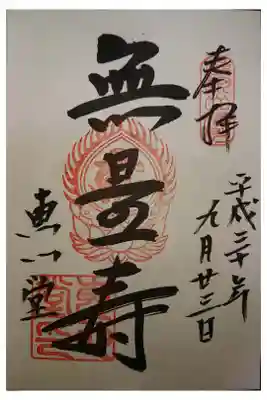 奉拝
平成二十年
九月廿三日
無量寿
恵一堂